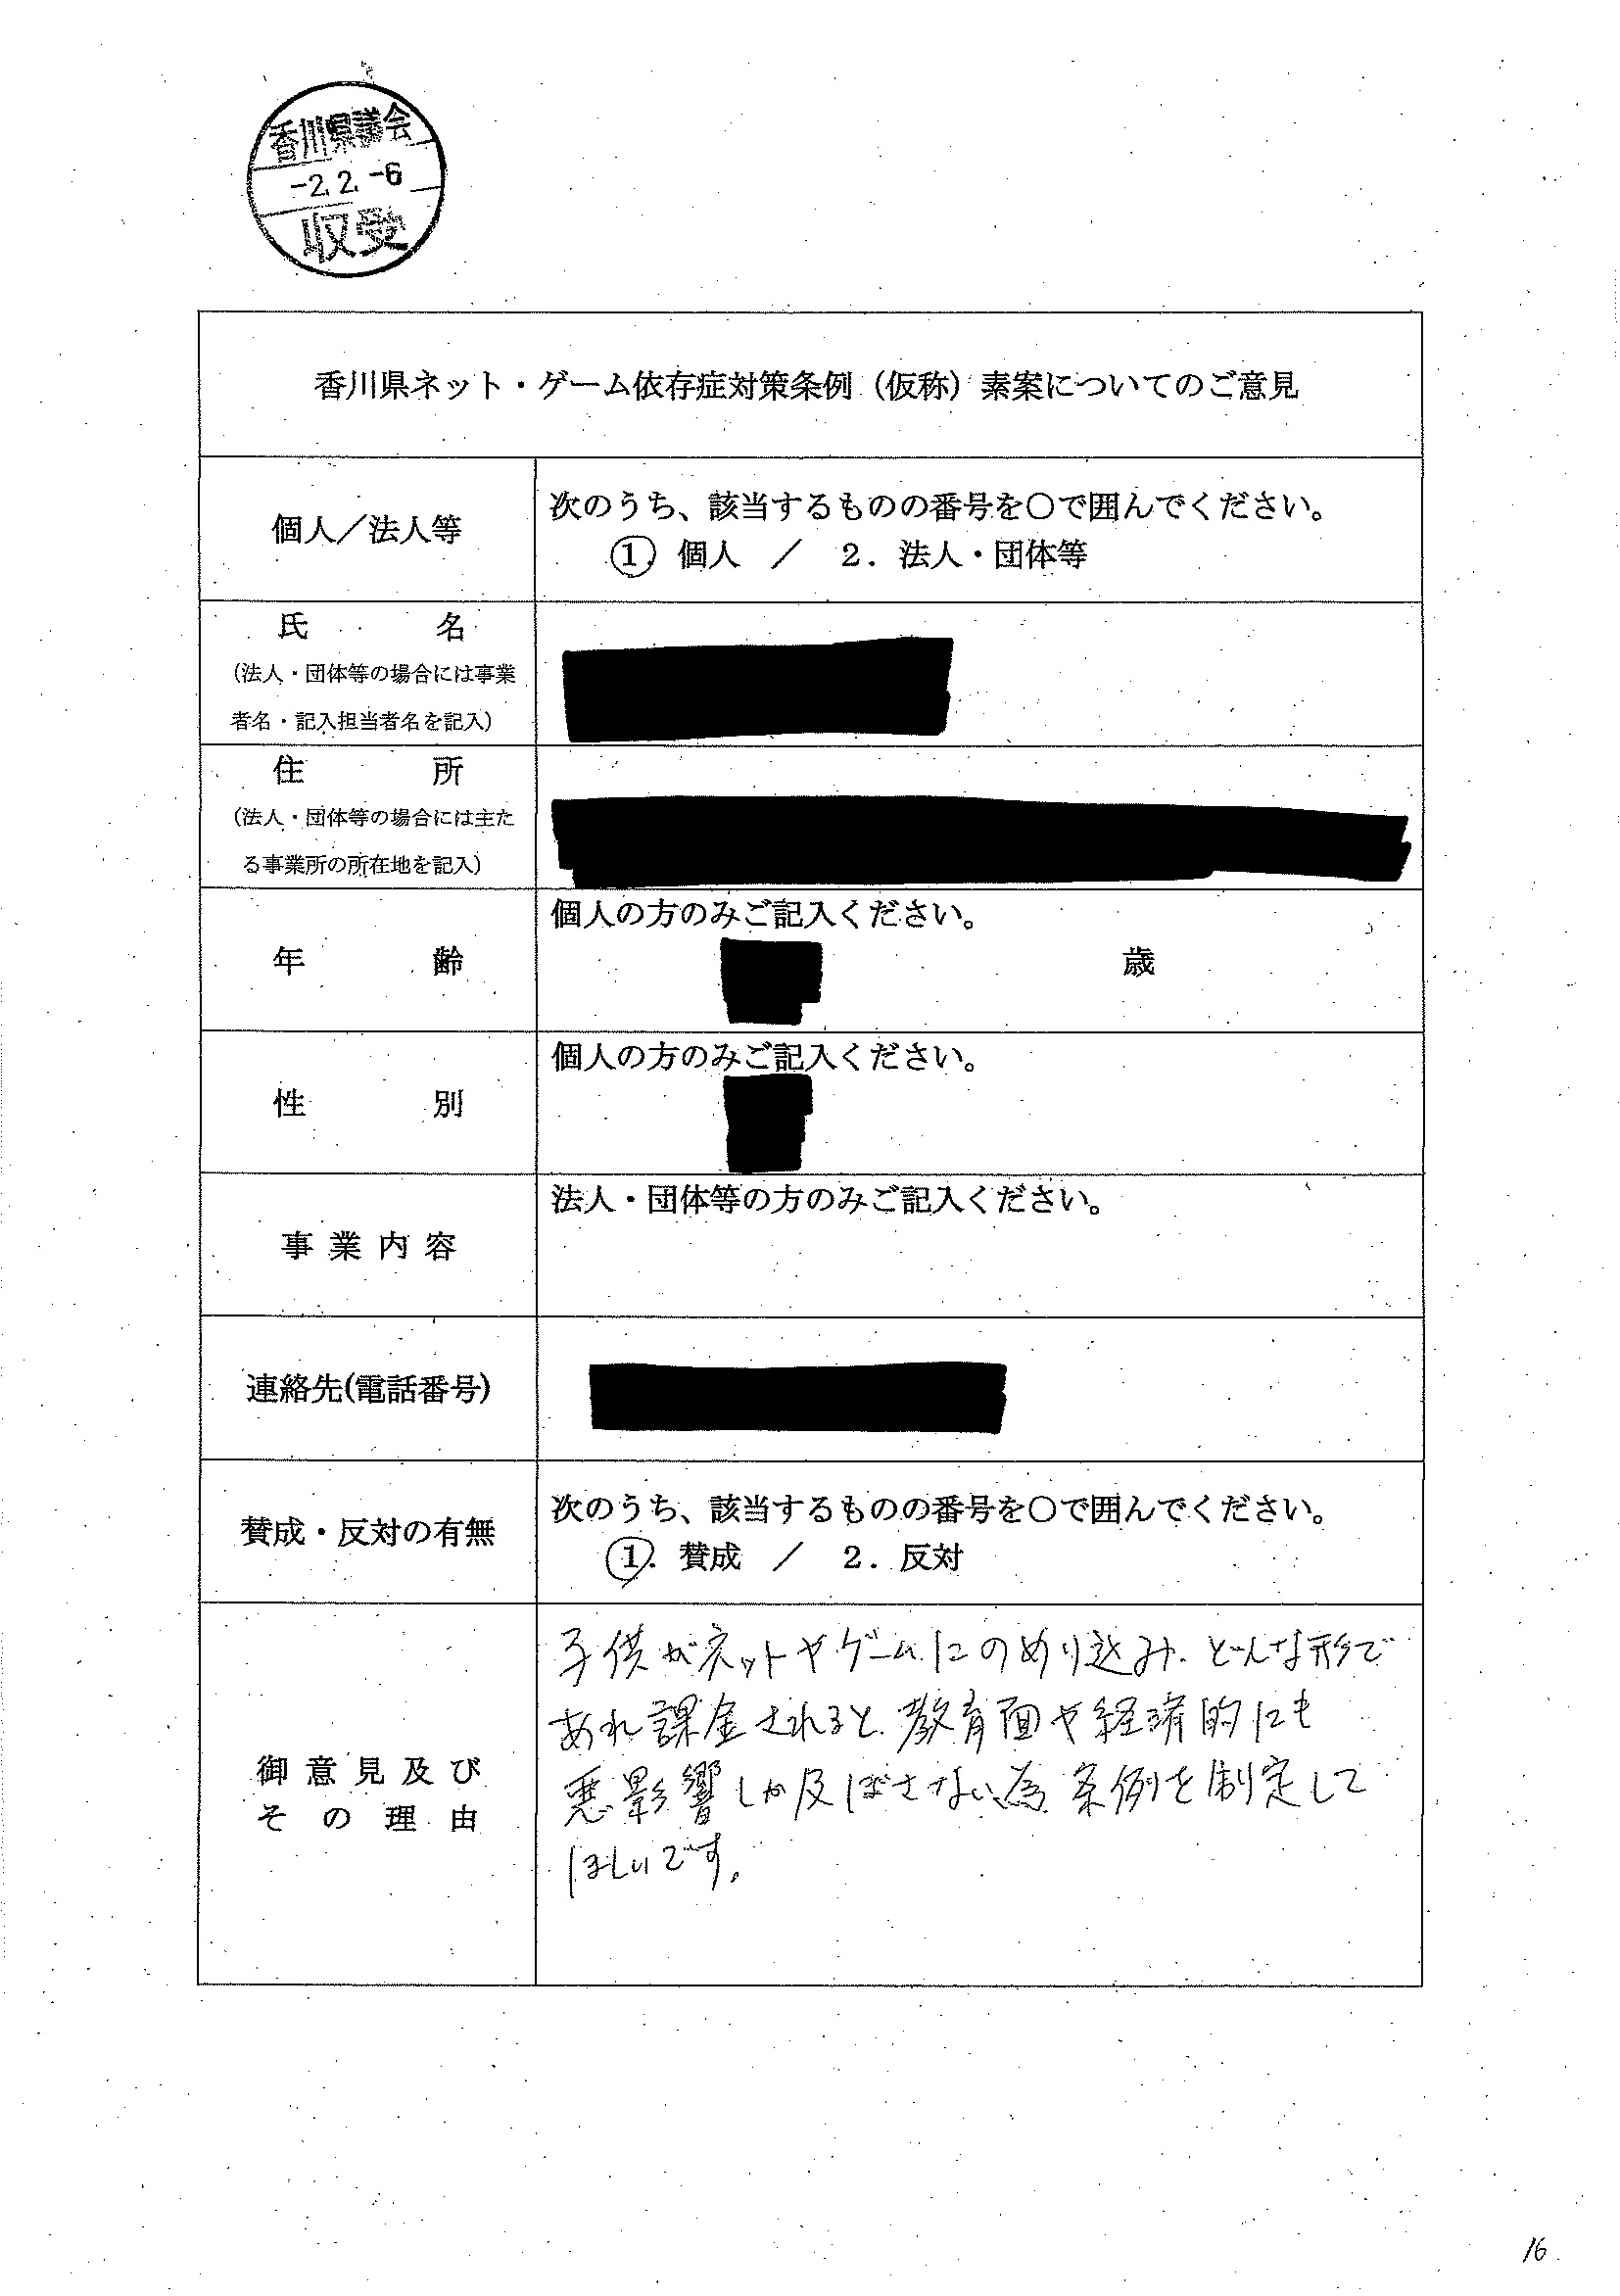 香川県議会
-2.2.-6
収受
香川県ネット・ゲーム依存症対策条例（仮称）素案についてのご意見
個人／法人等
次のうち、該当するものの番号を○で囲んでください。
1. 個人 ／ 2. 法人・団体等
氏 名
（法人・団体等の場合には事業
者名・記入担当者名を記入）
住 所
（法人・団体等の場合には主た
る事業所の所在地を記入）
年 齢
個人の方のみご記入ください。
歳
性 別
個人の方のみご記入ください。
事業内容
法人・団体等の方のみご記入ください。
連絡先(電話番号)
賛成・反対の有無
次のうち、該当するものの番号を○で囲んでください。
1. 賛成 ／ 2. 反対
御意見及び
その理由
子供がネットやゲームにのめり込み、どんな形で
あれ課金されると、教育面や経済的にも
悪影響しか及ばさない為、条例を制定して
ほしいです。
16